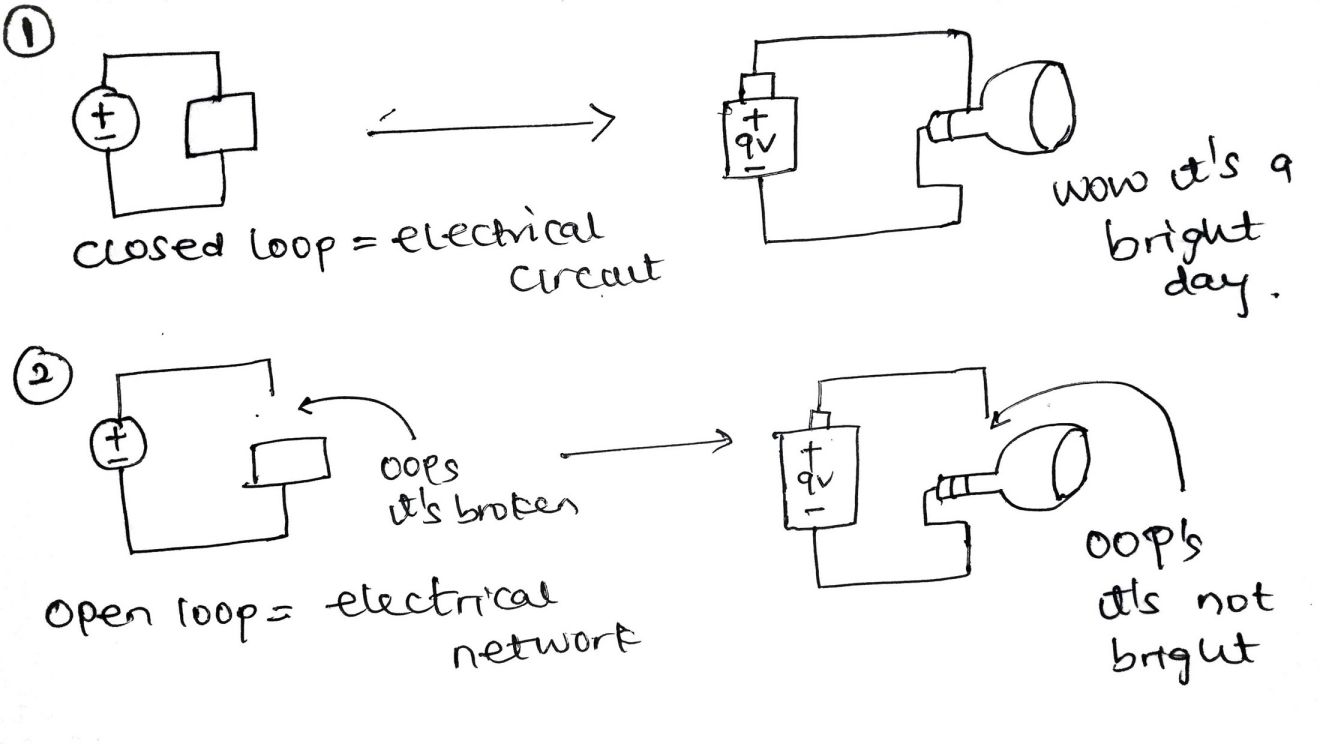 1
+
-
+
9V
-
closed loop = electrical
circuit
wow it's a
bright
day.
2
+
-
oops
it's broken
+
9V
-
open loop = electrical
network
oop's
it's not
bright